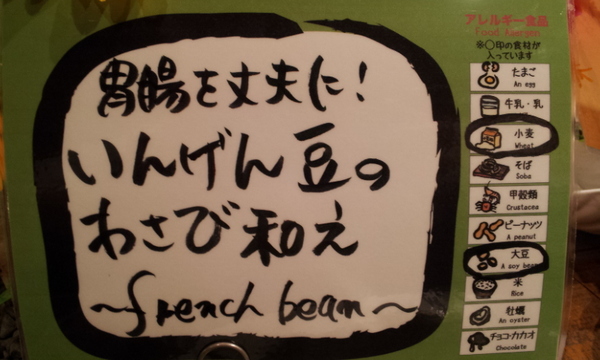 胃腸を丈夫に!
いんげん豆の
わさび和え
~french bean~
アレルギー食品
Food Allergen
※○印の食材が
入っています
たまご
An egg
牛乳・乳
小麦
Wheat
そば
Soba
甲殻類
Crustacea
ピーナッツ
A peanut
大豆
A soy bean
米
Rice
牡蠣
An oyster
チョコ・カカオ
Chocolate